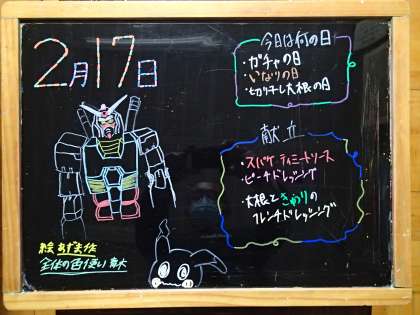 2月17日
今日は何の日
・ガチャの日
・いなりの日
・切り干し大根の日
献立
・スパゲティミートソース
・ピーチドレッシング
・大根ときゅうりの
フレンチドレッシング
絵
全体の色使い